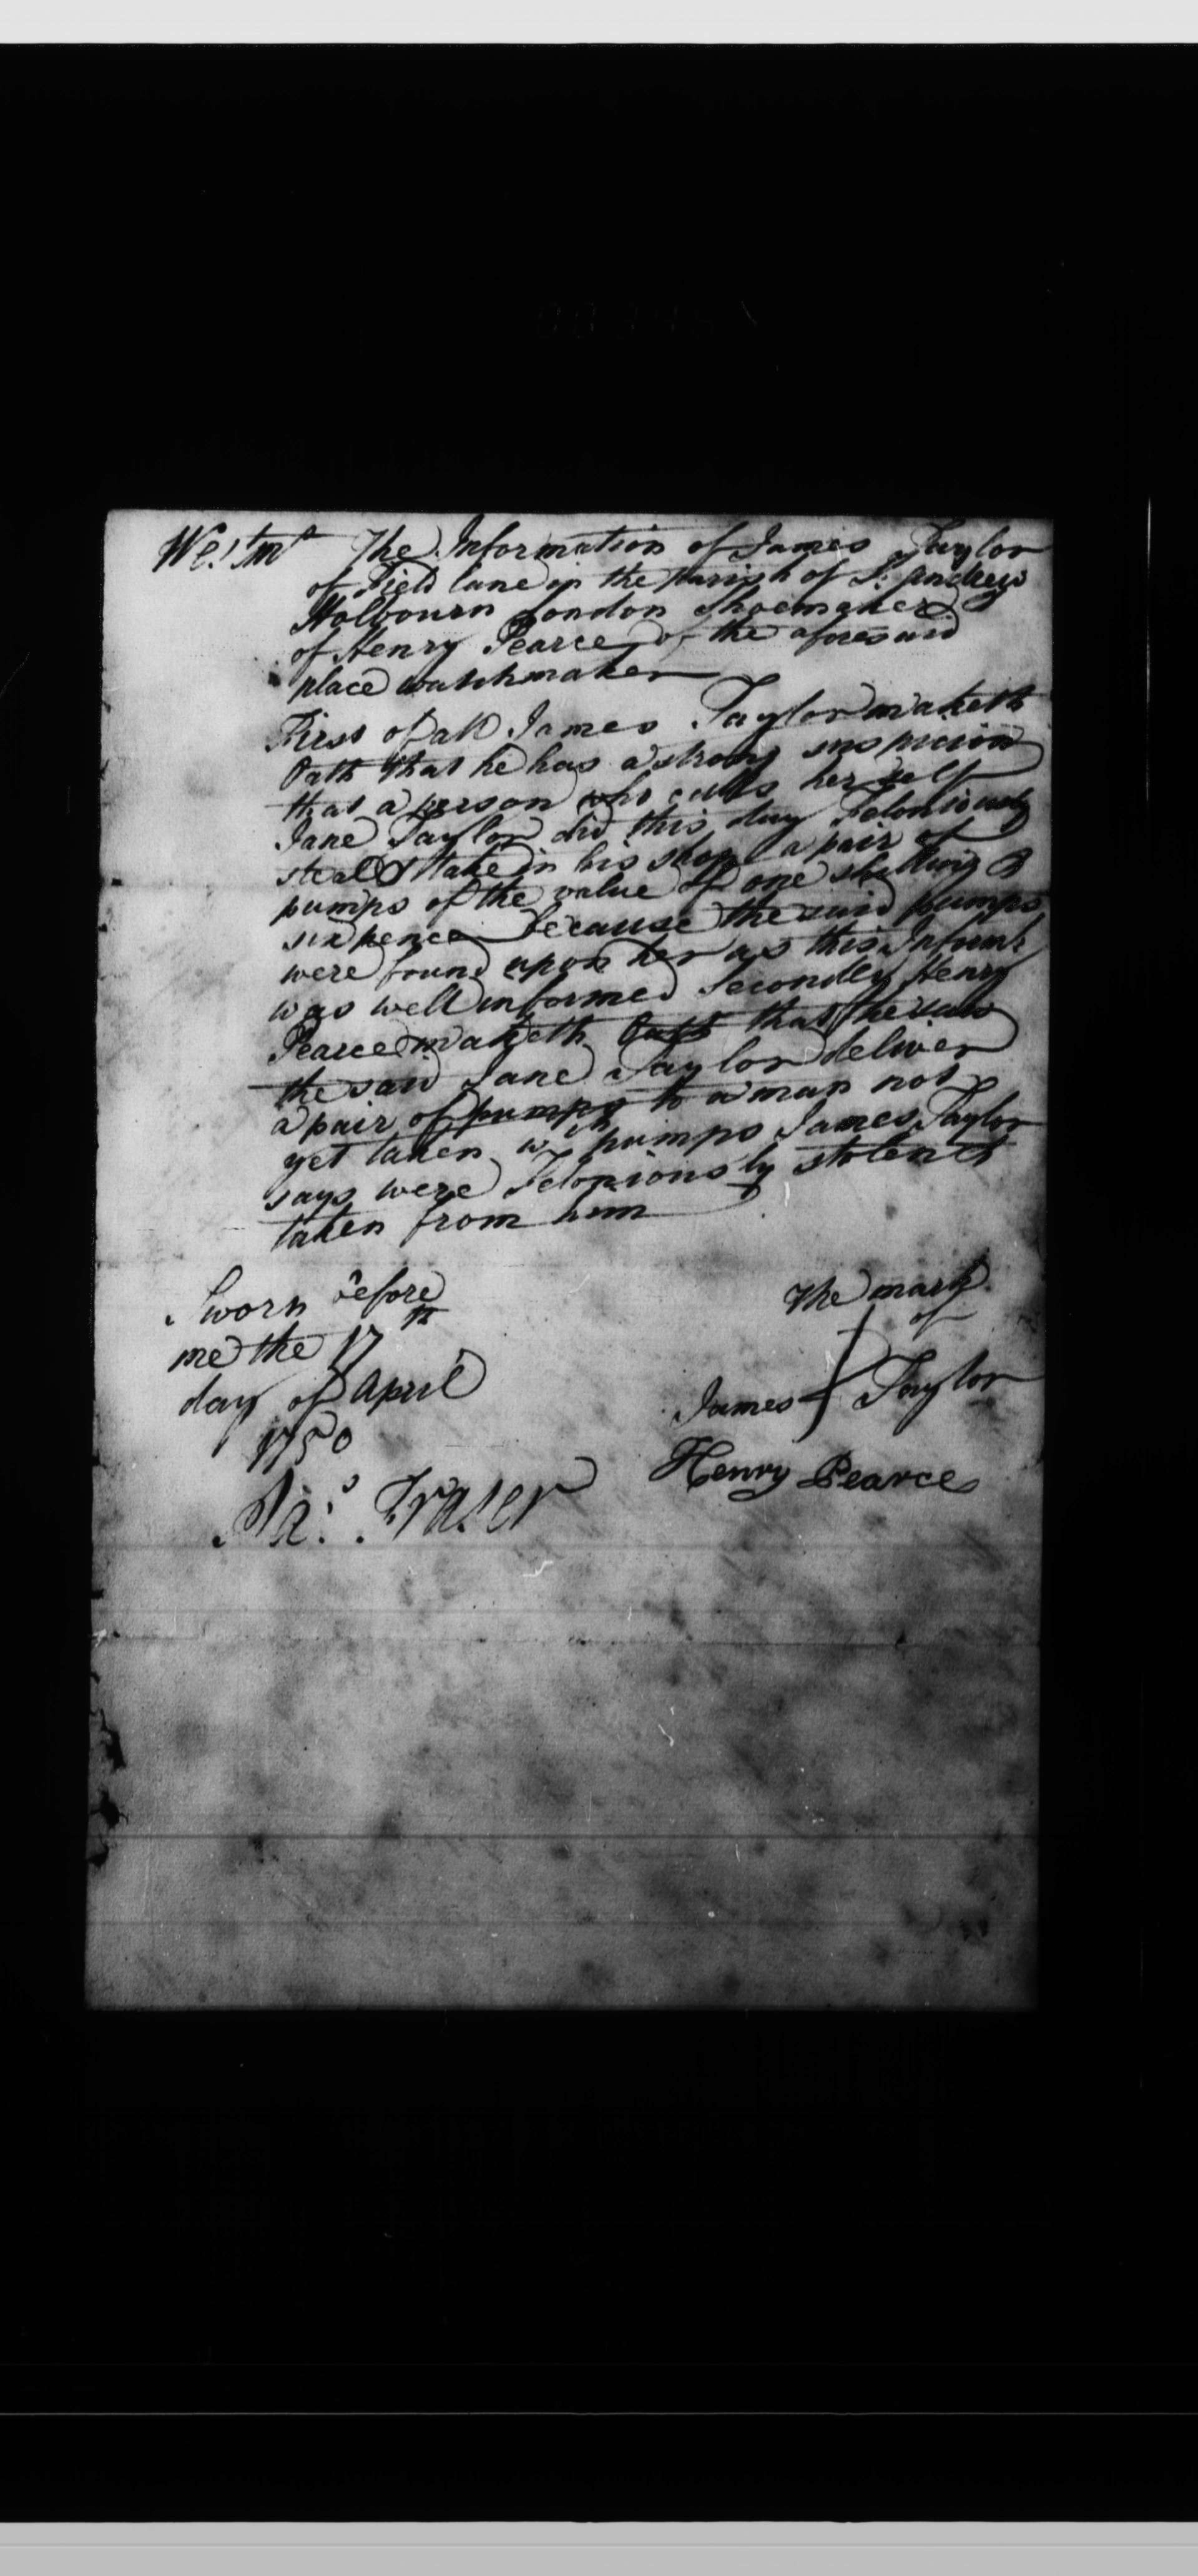 Westmr The Information of James Taylor
of Field lane in the parish of St. Andrews
Holbourn London Shoemaker &
of Henry Pearce of the aforesaid
place watchmaker
First of all James Taylor maketh
Oath that he has a strong suspicion
that a person who calls her self
Jane Taylor did this day Feloniously
steal & take in his shop a pair of
pumps of the value of one shilling &
six pence because the said pumps
were found upon her as this Informt
was well informed Secondly Henry
Pearce maketh Oath that he saw
the said Jane Taylor deliver
a pair of pumps to a man not
yet taken wch pumps James Taylor
says were Feloniously stolen &
taken from him
Sworn before
me the 17th
day of April
1750
Fraser
The mark
of
James Taylor
Henry Pearce